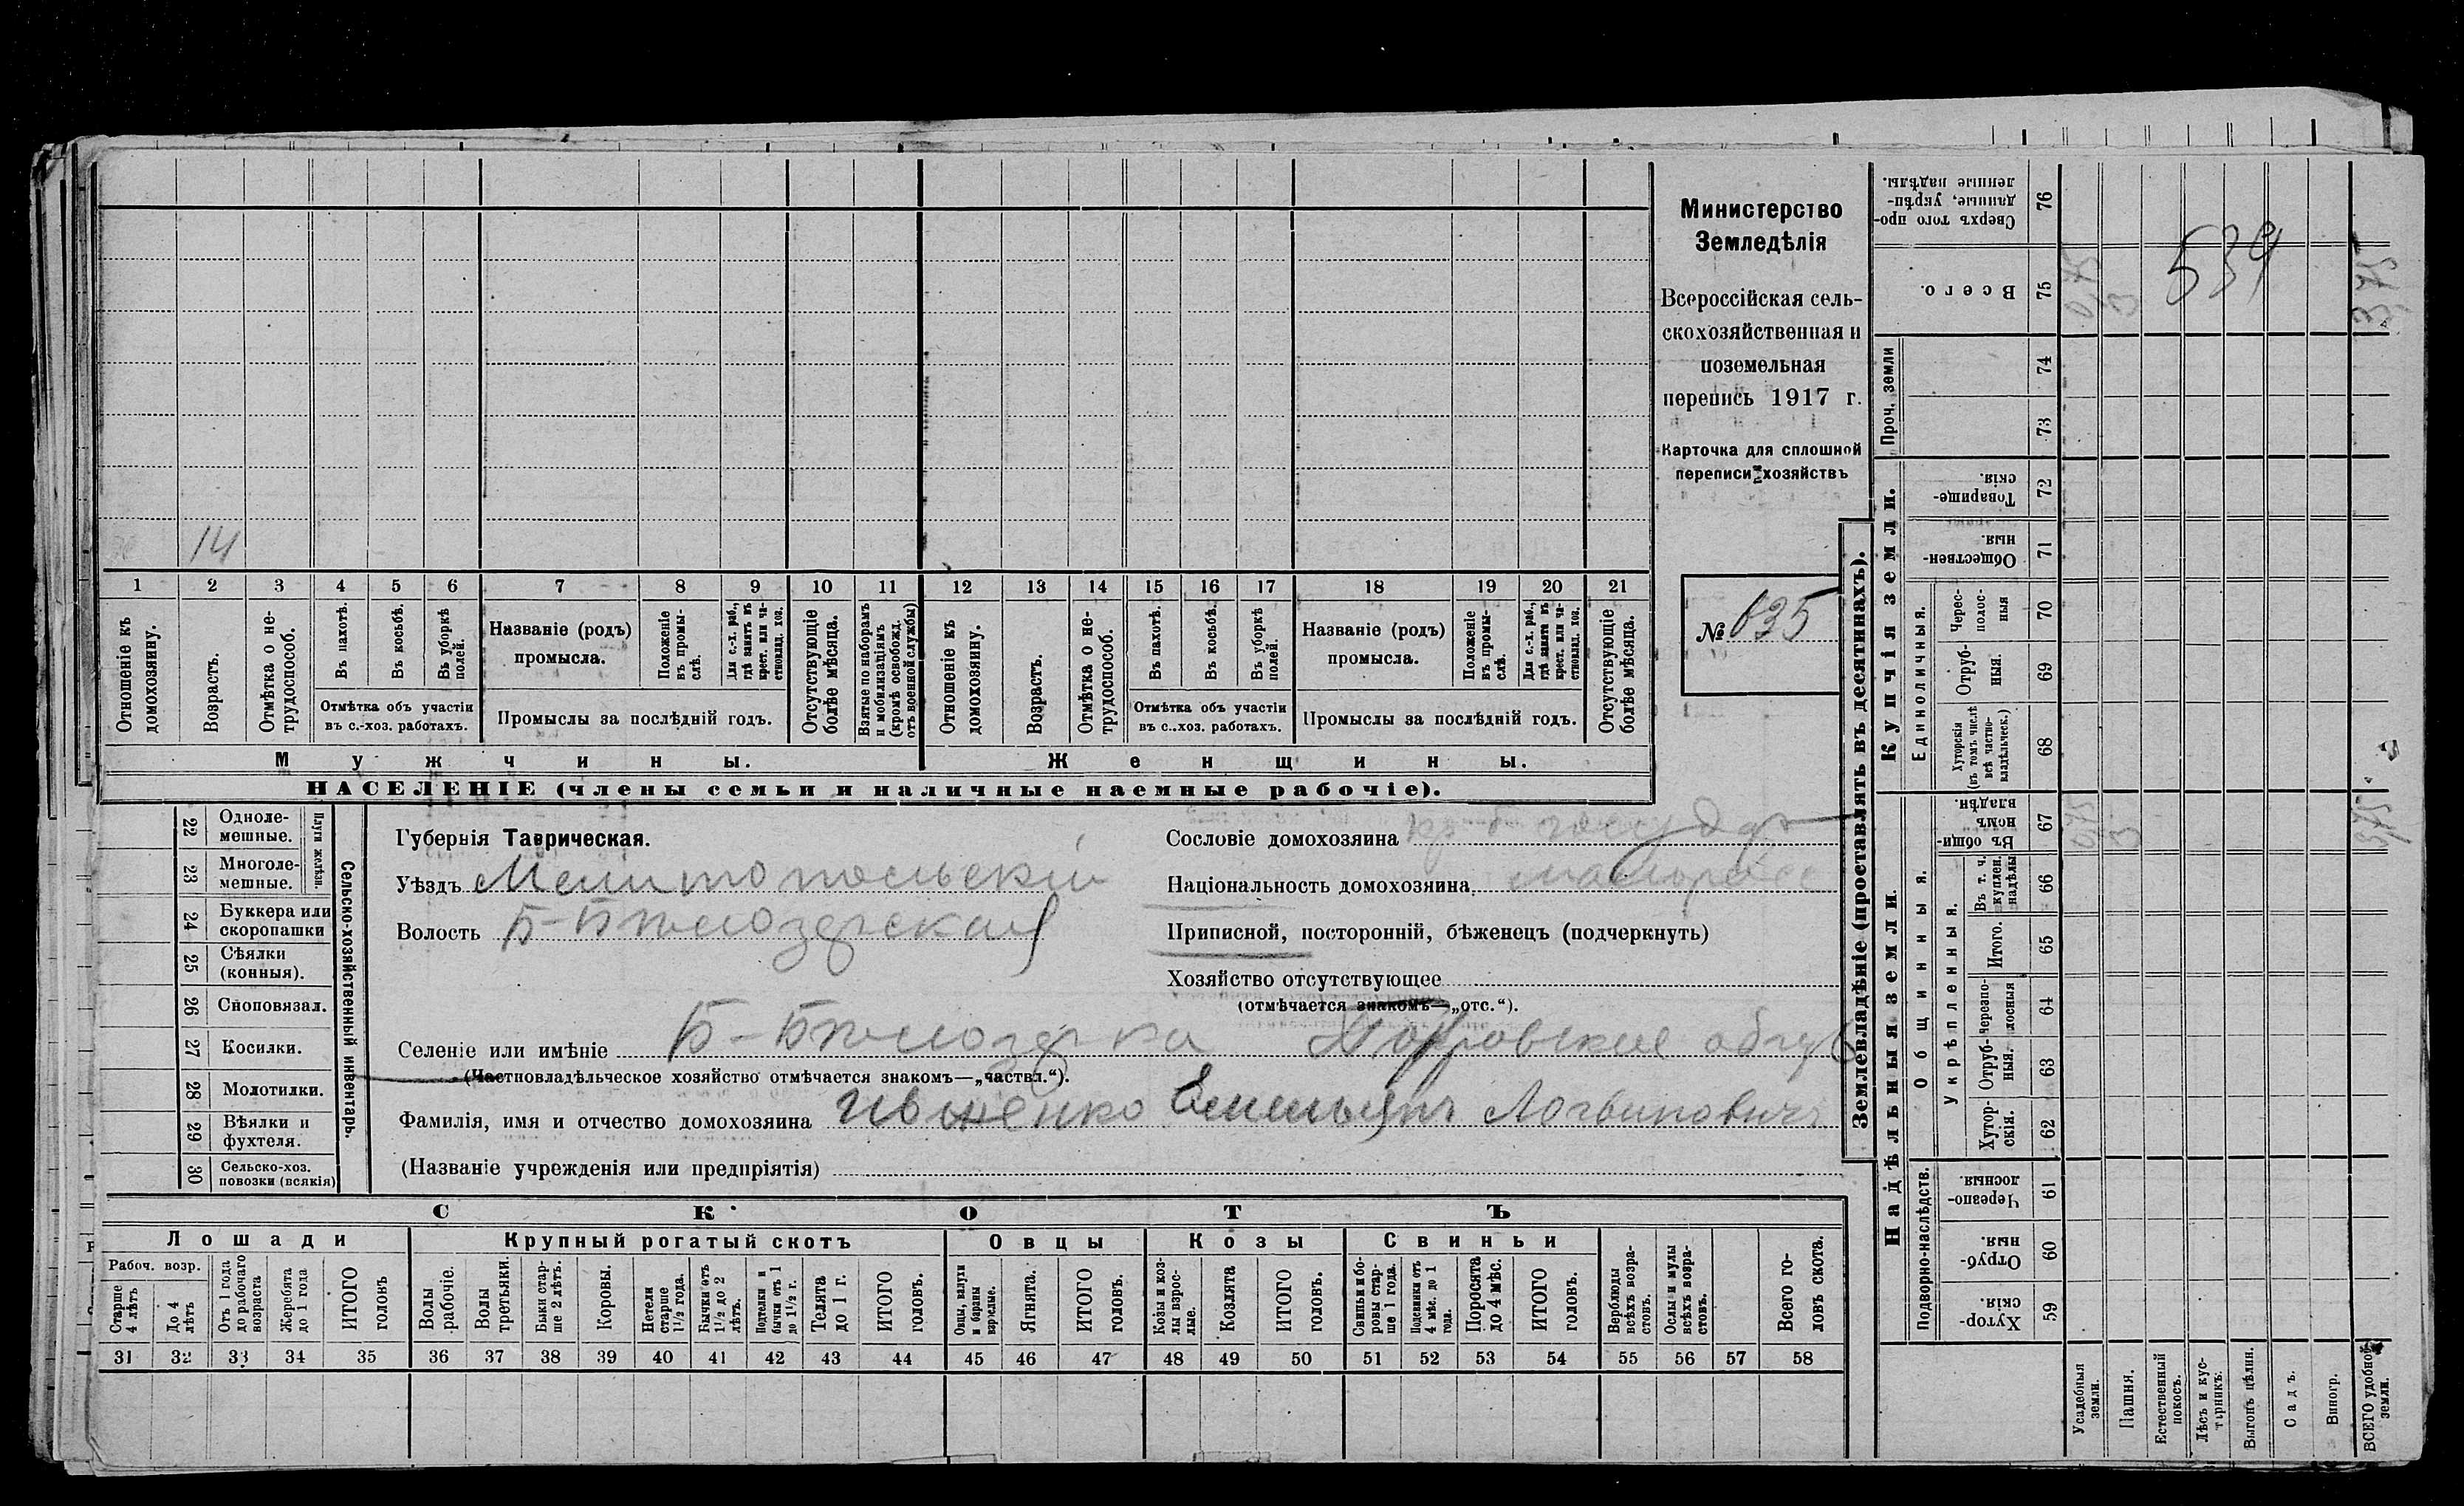 Министерство
Земледѣлія
Всероссійская сель-
скохозяйственная и
поземельная
перепись 1917 г.
Карточка для сплошной
переписи хозяйствъ
№ 635
14
1 2 3 4 5 6 7 8 9 10 11 12 13 14 15 16 17 18 19 20 21
Отношеніе къ домохозяину.
Возрастъ.
Отмѣтка о не-трудоспособ.
Въ пахотѣ.
Въ косьбѣ.
Въ уборкѣ полей.
Отмѣтка объ участіи
въ с.-хоз. работахъ.
Названіе (родъ)
промысла.
Положеніе въ промы-слѣ.
Для с.-х. раб., гдѣ занятъ въ крест. или ча-стновлад. хоз.
Промыслы за послѣдній годъ.
Отсутствующіе болѣе мѣсяца.
Взятые по наборамъ и мобилизаціямъ (кромѣ освобожд. отъ военной службы)
Отношеніе къ домохозяину.
Возрастъ.
Отмѣтка о не-трудоспособ.
Въ пахотѣ.
Въ косьбѣ.
Въ уборкѣ полей.
Отмѣтка объ участіи
въ с.-хоз. работахъ.
Названіе (родъ)
промысла.
Положеніе въ промы-слѣ.
Для с.-х. раб., гдѣ занята въ крест. или ча-стновлад. хоз.
Промыслы за послѣдній годъ.
Отсутствующіе болѣе мѣсяца.
Мужчины.
Женщины.
НАСЕЛЕНІЕ (члены семьи и наличные наемные рабочіе).
Сельско-хозяйственный инвентарь.
Плуги желѣзн.
22 Одноле-мешные.
23 Многоле-мешные.
24 Буккера или скоропашки
25 Сѣялки (конныя).
26 Сноповязал.
27 Косилки.
28 Молотилки.
29 Вѣялки и фухтеля.
30 Сельско-хоз. повозки (всякія)
Губернія Таврическая.
Уѣздъ Мелитопольскій
Волость Б-Бѣлозерская
Сословіе домохозяина
Національность домохозяина малоросс
Приписной, посторонній, бѣженецъ (подчеркнуть)
Хозяйство отсутствующее
(отмѣчается знакомъ—„отс.“).
Селеніе или имѣніе Б-Бѣлозерка Покровское общ
(Частновладѣльческое хозяйство отмѣчается знакомъ—„частвл.“).
Фамилія, имя и отчество домохозяина Ивненко Емельянъ Логвиновичъ
(Названіе учрежденія или предпріятія)
СКОТЪ
Лошади
Крупный рогатый скотъ
Овцы
Козы
Свиньи
Рабоч. возр.
Старше 4 лѣтъ
До 4 лѣтъ
Отъ 1 года до рабочаго возраста
Жеребята до 1 года
ИТОГО головъ
Волы рабочіе.
Волы третьяки.
Быки стар-ше 2 лѣтъ.
Коровы.
Нетели старше 1½ года.
Бычки отъ 1½ до 2 лѣтъ.
Подтелки и бычки отъ 1 до 1½ г.
Телята до 1 г.
ИТОГО головъ.
Овцы, валухи и бараны взрослые.
Ягнята.
ИТОГО головъ.
Козы и коз-лы взрос-лые.
Козлята
ИТОГО головъ.
Свиньи и бо-ровы стар-ше 1 года.
Подсвинки отъ 4 мѣс. до 1 года.
Поросята до 4 мѣс.
ИТОГО головъ.
Верблюды всѣхъ возра-стовъ.
Ослы и мулы всѣхъ возра-стовъ.
Всего го-ловъ скота.
31 32 33 34 35 36 37 38 39 40 41 42 43 44 45 46 47 48 49 50 51 52 53 54 55 56 57 58
Землевладѣніе (проставлять въ десятинахъ).
Купчія земли.
Надѣльныя земли.
Сверхъ того про-данные, укрѣп-ленные надѣлы. 76
Всего. 75 0,75 3 3,75
534
Проч. земли 74 73
Товарище-скія. 72
Обществен-ныя. 71
Единоличныя.
Черес-полос-ныя 70
Отруб-ныя. 69
Хуторскія (въ томъ числѣ всѣ частно-владѣльческ.) 68
Общинныя.
Въ общи-номъ владѣн. 67 0,75 3 3,75
Укрѣпленныя.
Въ т. ч. куплен. надѣлы 66
Итого. 65
Черезпо-лосныя 64
Отруб-ныя. 63
Хутор-скія. 62
Подворно-наслѣдств.
Черезпо-лосныя. 61
Отруб-ныя. 60
Хутор-скія. 59
Усадебныя земли.
Пашня.
Естественный покосъ.
Лѣсъ и кус-тарникъ.
Выгонъ цѣлин.
Садъ.
Виногр.
ВСЕГО удобной земли.